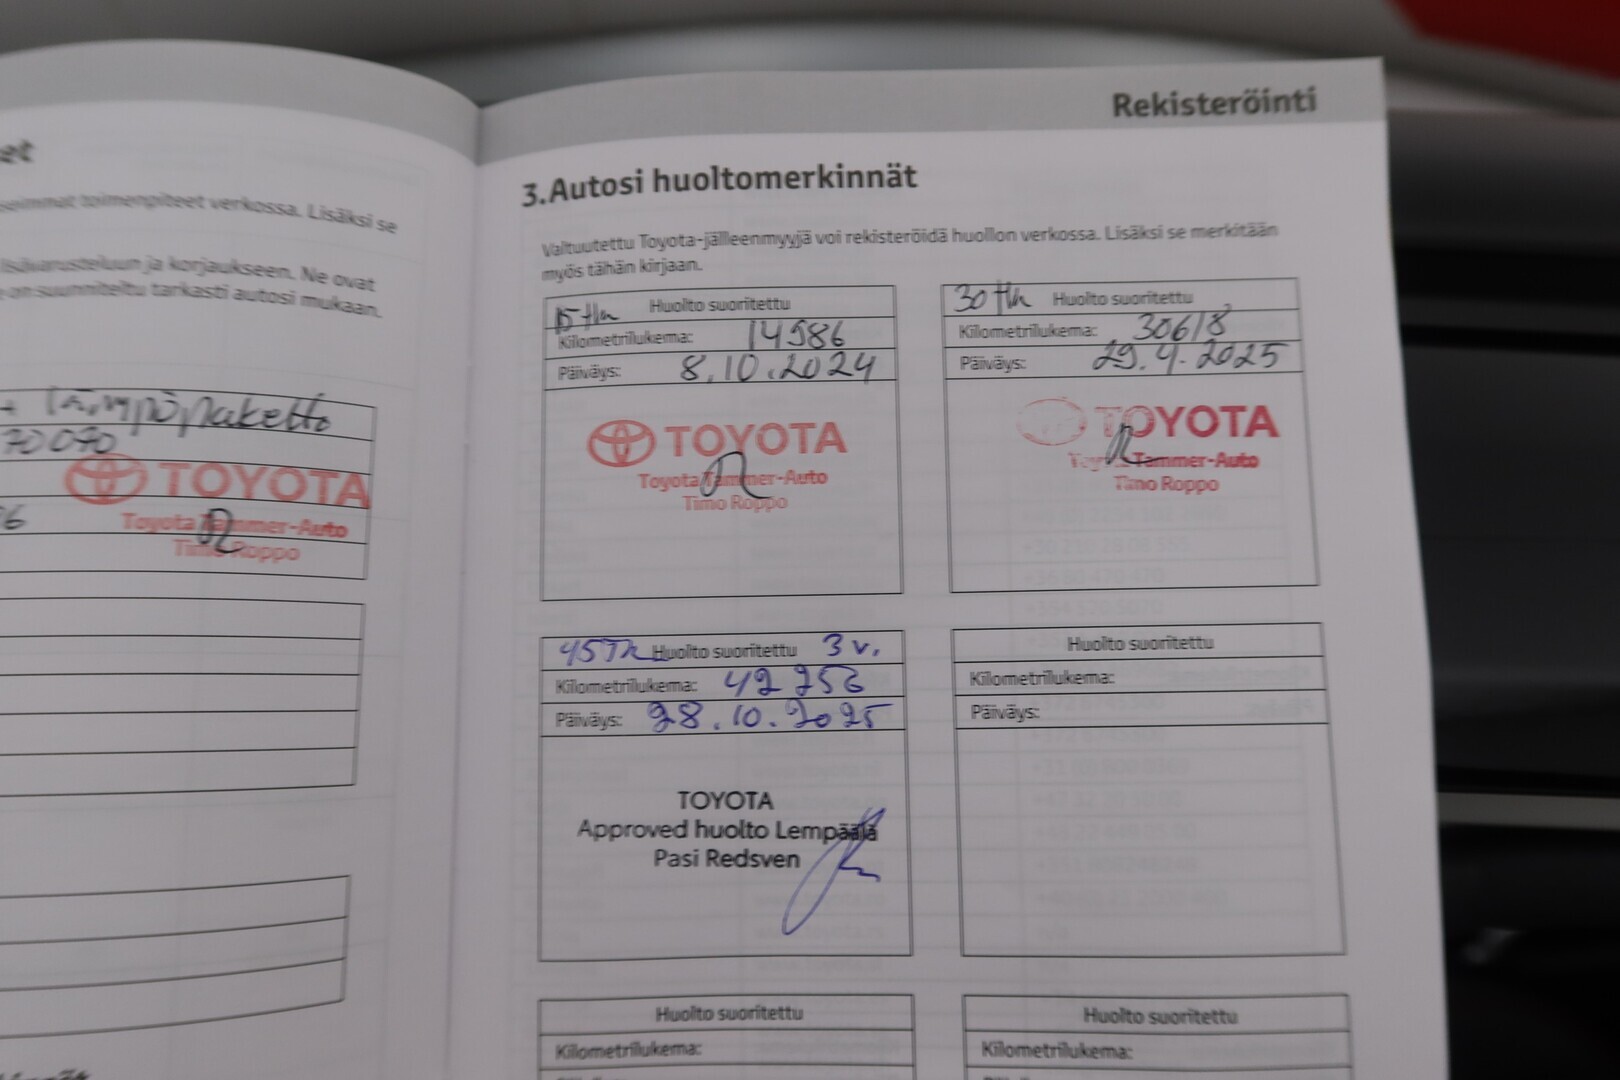 et
toimenpiteet verkossa. Lisäksi se
lisävarusteluun ja korjaukseen. Ne ovat
on suunniteltu tarkasti autosi mukaan.
+ Lämpöpaketto
70070
TOYOTA
Toyota Tammer-Auto
Timo Roppo
Rekisteröinti
3.Autosi huoltomerkinnät
Valtuutettu Toyota-jälleenmyyjä voi rekisteröidä huollon verkossa. Lisäksi se merkitään
myös tähän kirjaan.
15 tkm Huolto suoritettu
Kilometrilukema: 14586
Päiväys: 8.10.2024
TOYOTA
Toyota Tammer-Auto
Timo Roppo
30 tkm Huolto suoritettu
Kilometrilukema: 30618
Päiväys: 29.4.2025
TOYOTA
Toyota Tammer-Auto
Timo Roppo
45 Tk Huolto suoritettu 3 v.
Kilometrilukema: 42 256
Päiväys: 28.10.2025
TOYOTA
Approved huolto Lempäälä
Pasi Redsven
Huolto suoritettu
Kilometrilukema:
Päiväys:
Huolto suoritettu
Kilometrilukema:
Huolto suoritettu
Kilometrilukema: